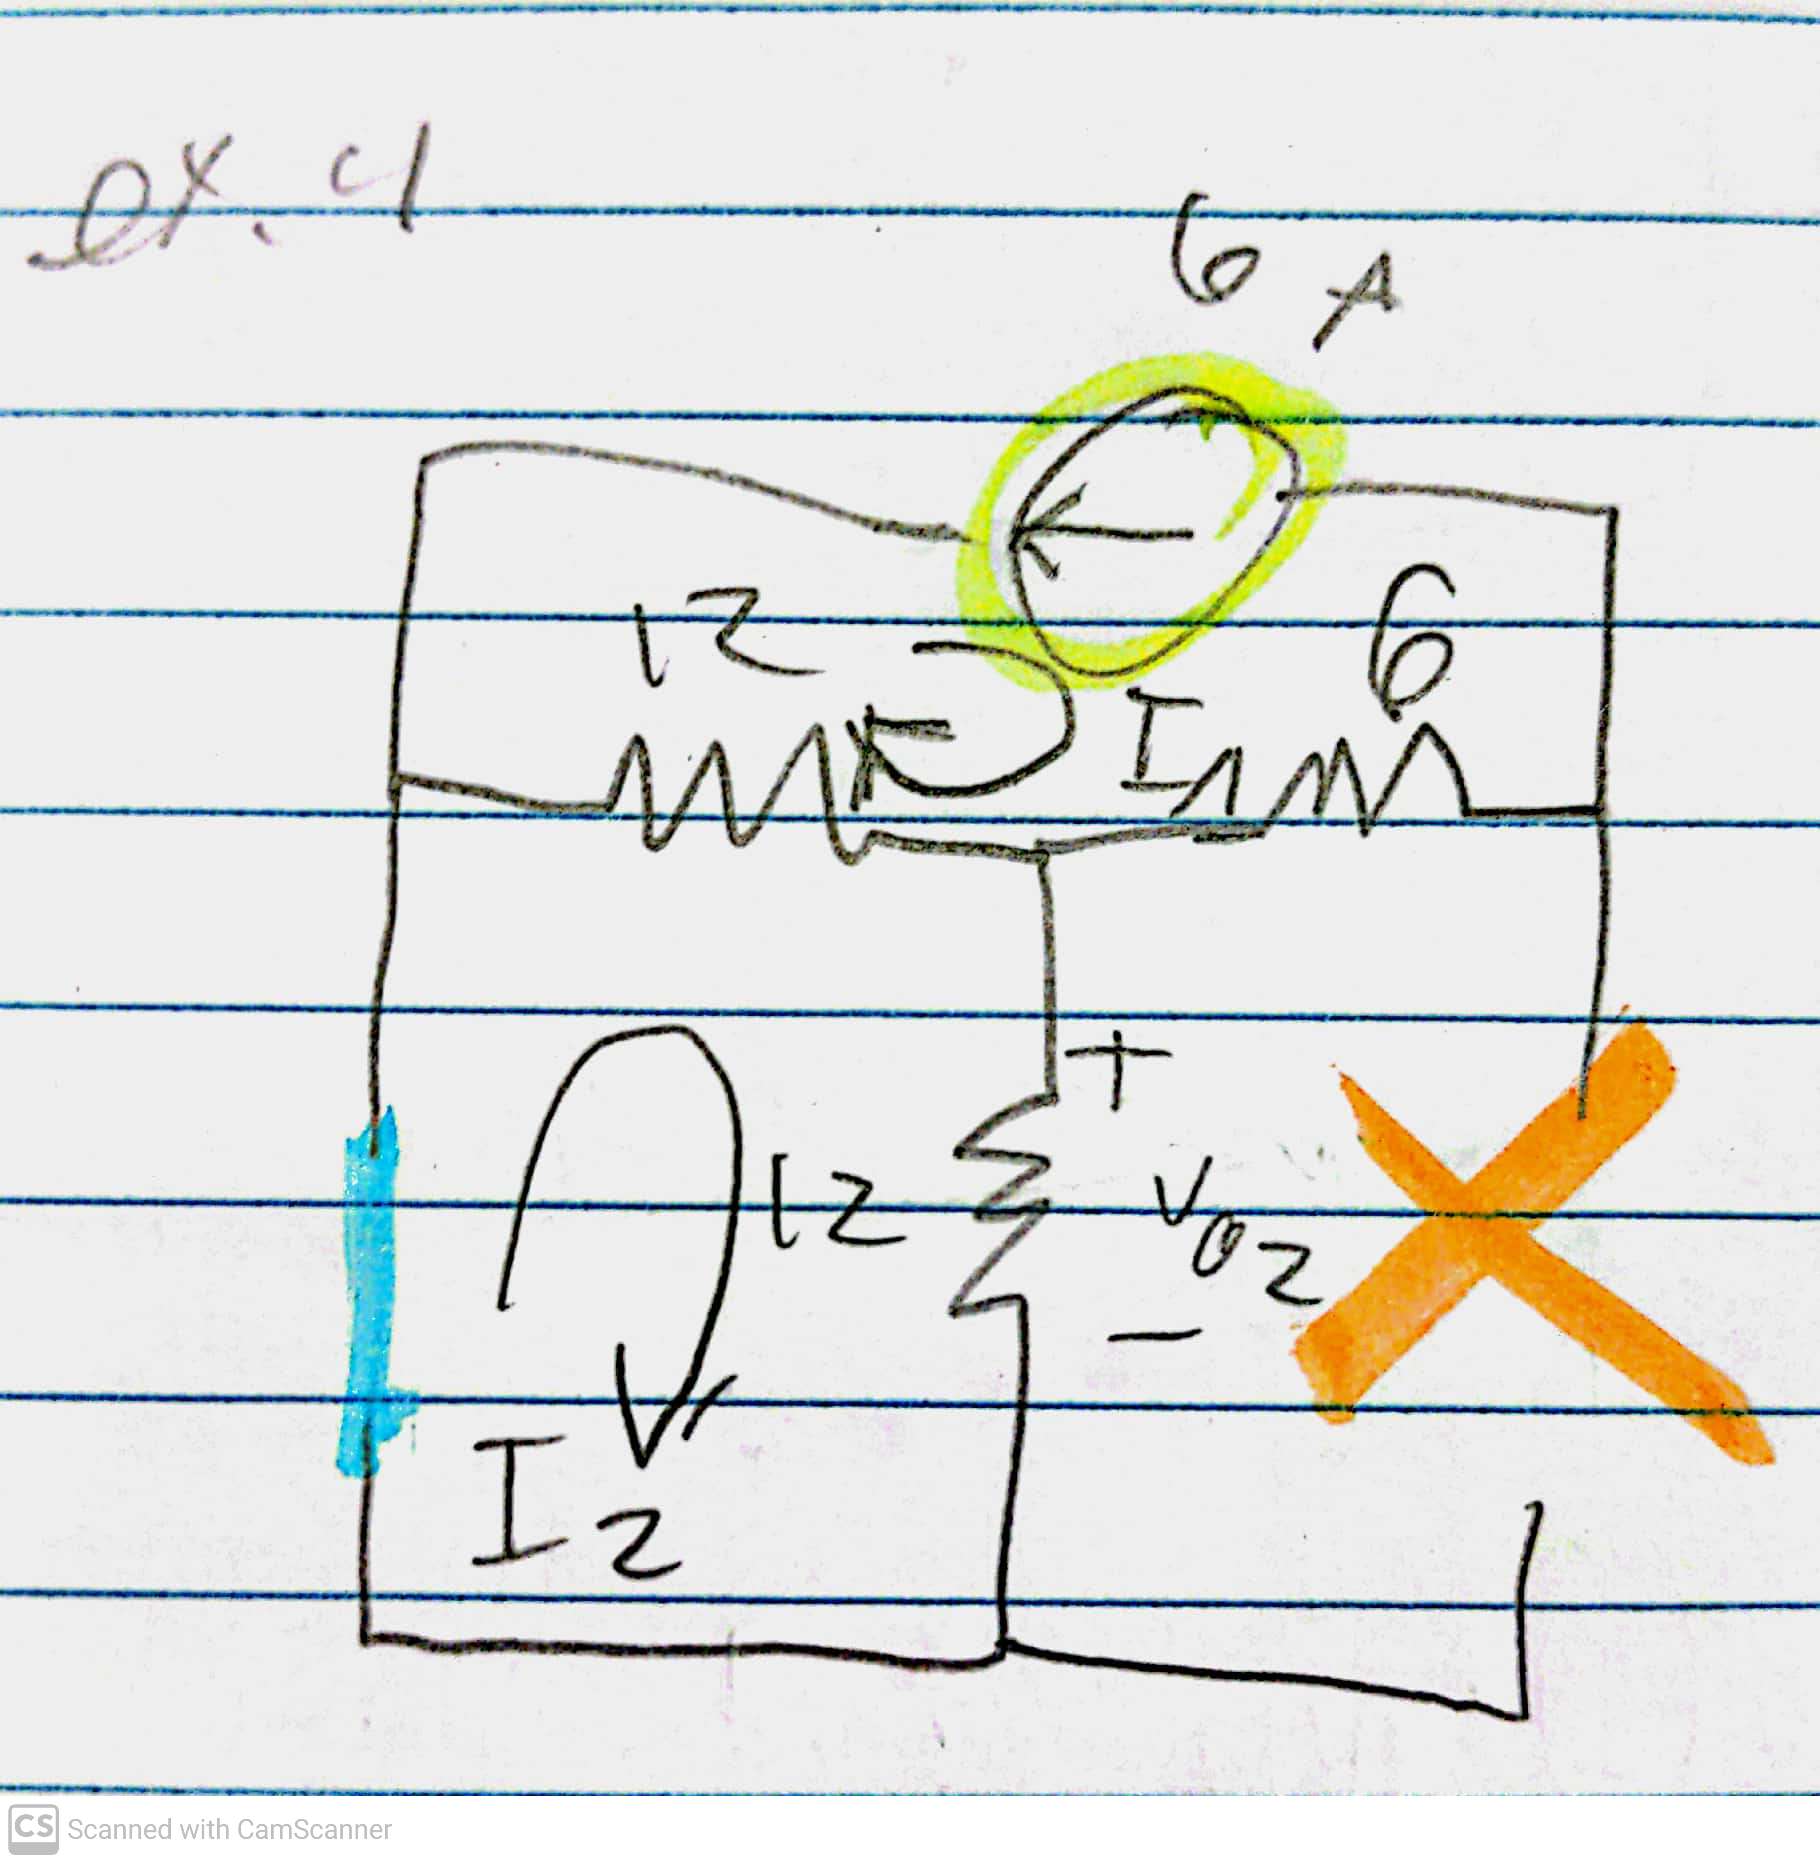 ex. 4
6 A
12
6
I
+
12
V02
-
I2
CS Scanned with CamScanner